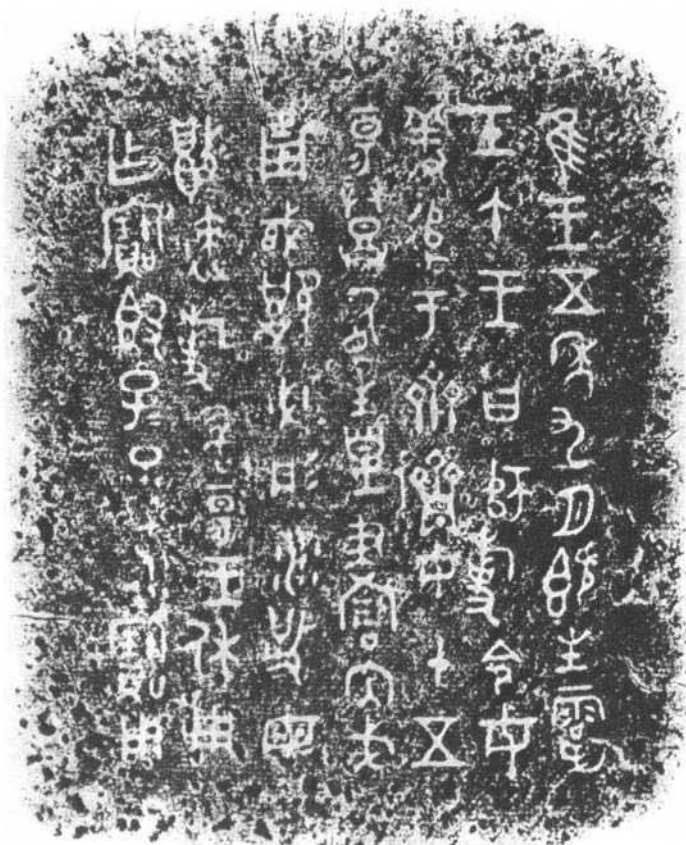 隹王五年九月既生霸
壬午王曰師旋令女
羞追于齊儕女十五
昜登盾生皇畫內戈
琱㦸必彤沙敬毋
敗速旋敢昜王休用
乍寶𣪘子孫永寶用